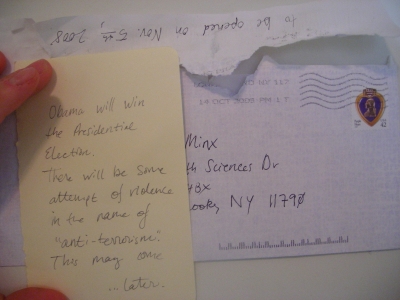 to be opened on Nov. 5th, 2008
Obama will win
the Presidential
Election.
There will be some
attempt of violence
in the name of
"anti-terrorism."
This may come
... later.
NY 117
14 OCT 2008 PM
Minx
Sciences Dr
NY 11790